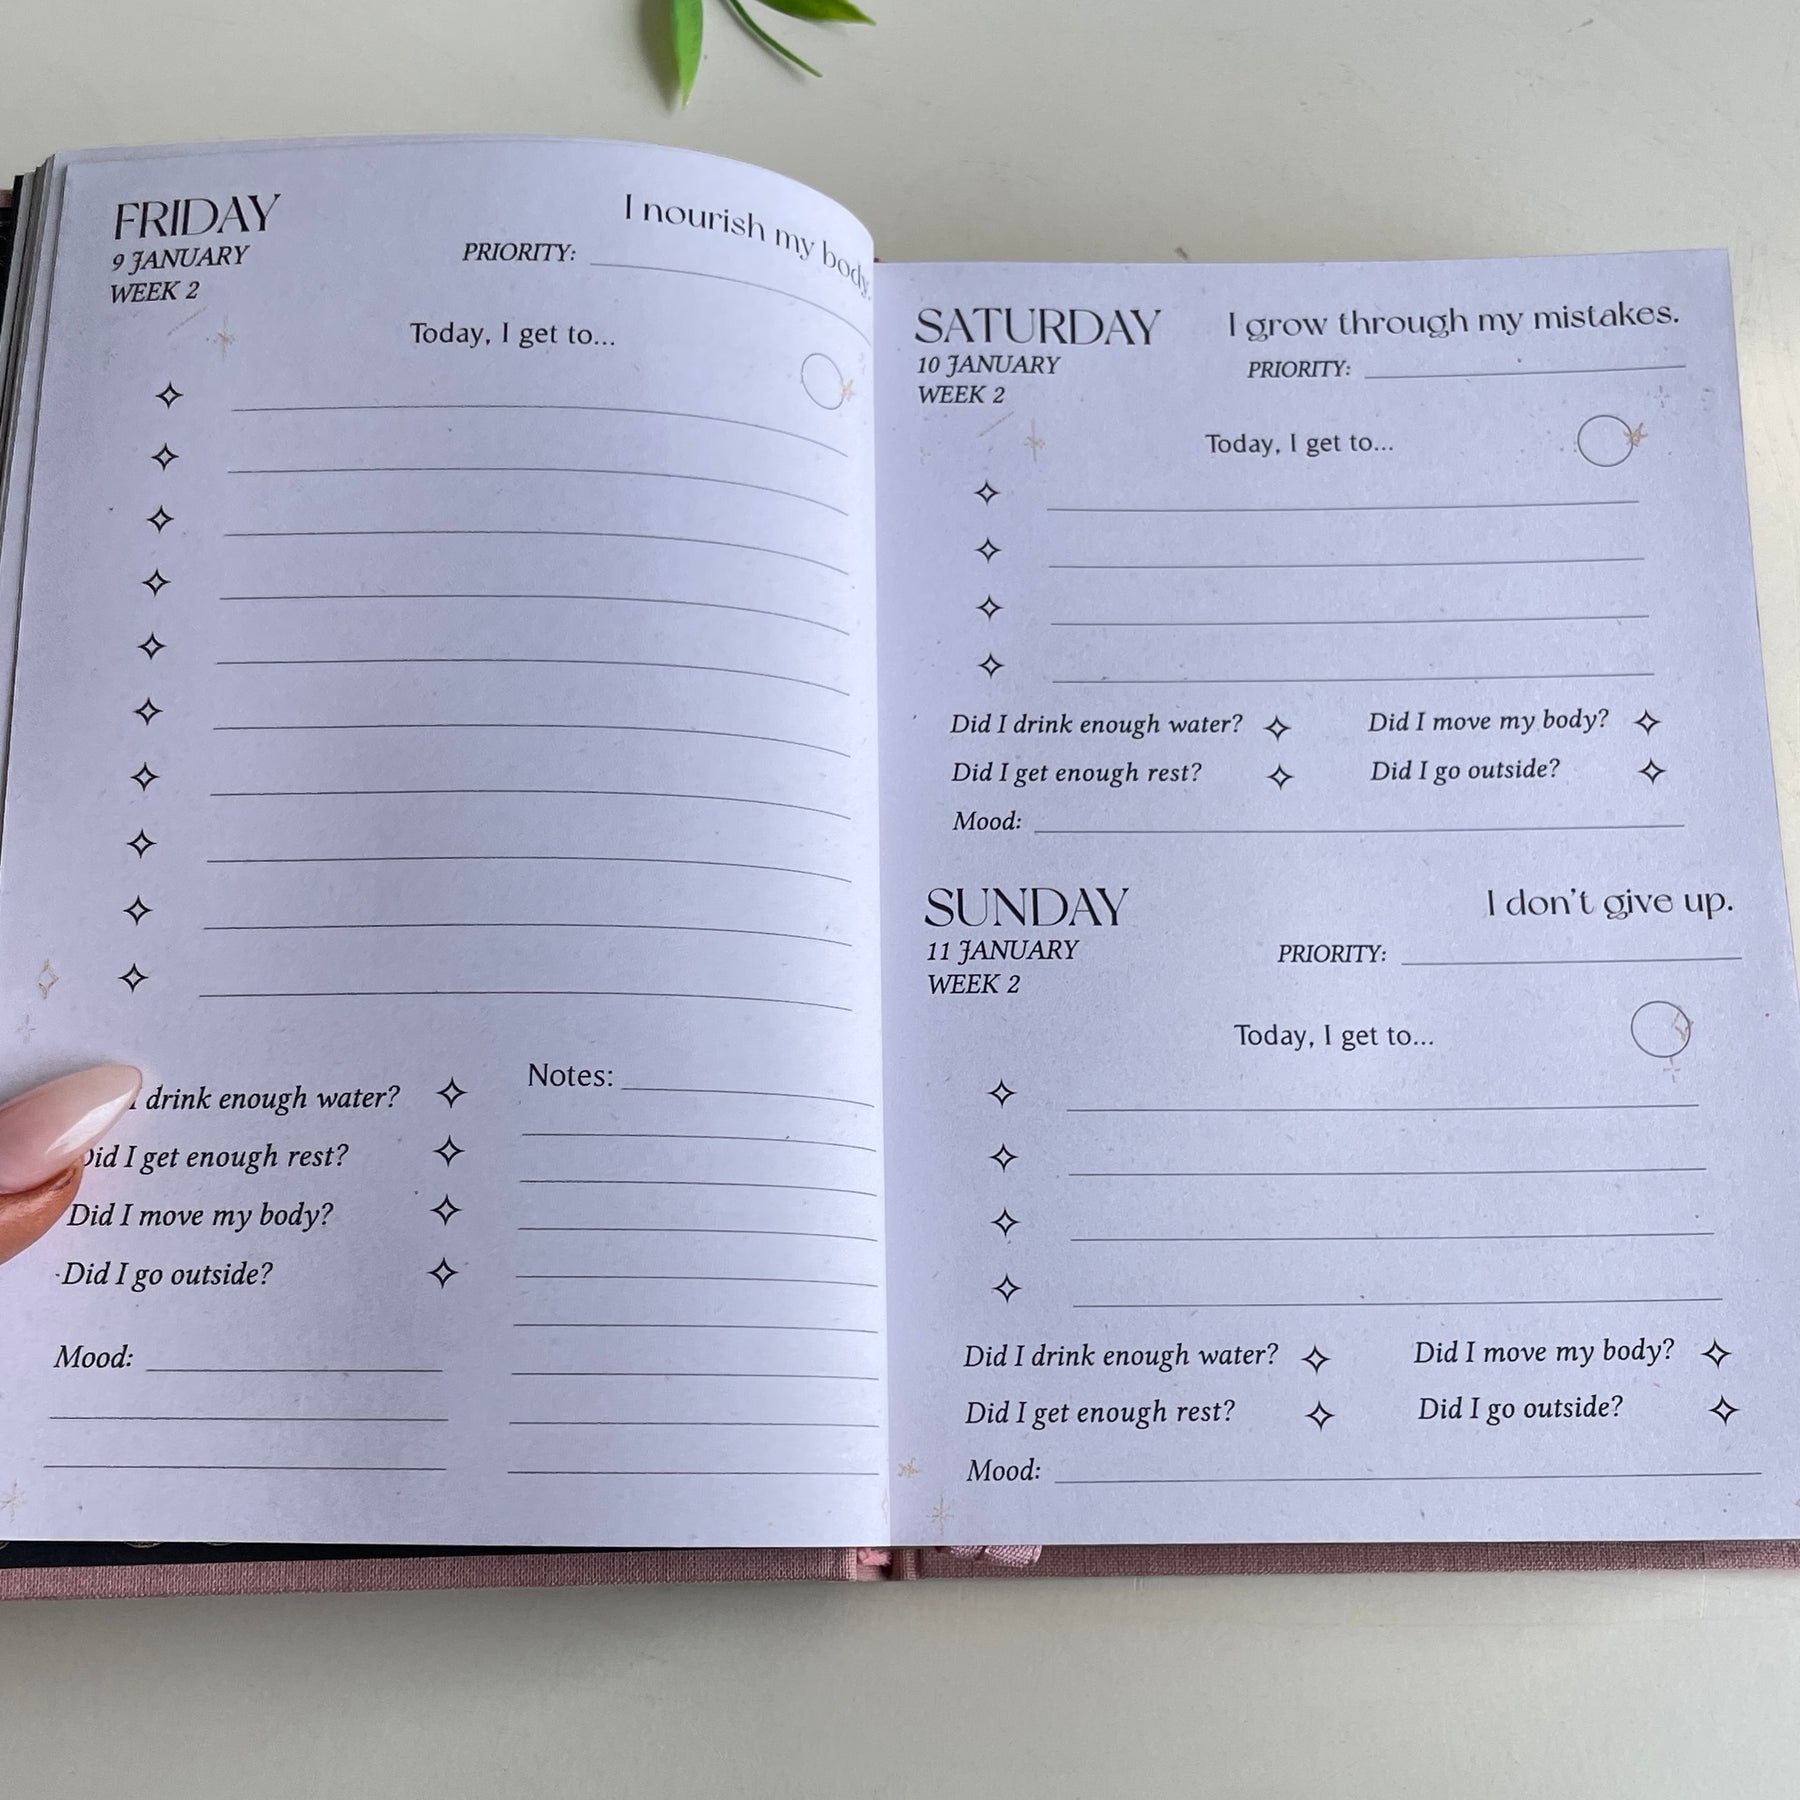 FRIDAY
I nourish my body.
9 JANUARY
PRIORITY:
WEEK 2
Today, I get to...
I drink enough water?
Did I get enough rest?
Did I move my body?
Did I go outside?
Mood:
Notes:
SATURDAY
I grow through my mistakes.
10 JANUARY
PRIORITY:
WEEK 2
Today, I get to...
Did I drink enough water?
Did I move my body?
Did I get enough rest?
Did I go outside?
Mood:
SUNDAY
I don't give up.
11 JANUARY
PRIORITY:
WEEK 2
Today, I get to...
Did I drink enough water?
Did I move my body?
Did I get enough rest?
Did I go outside?
Mood: